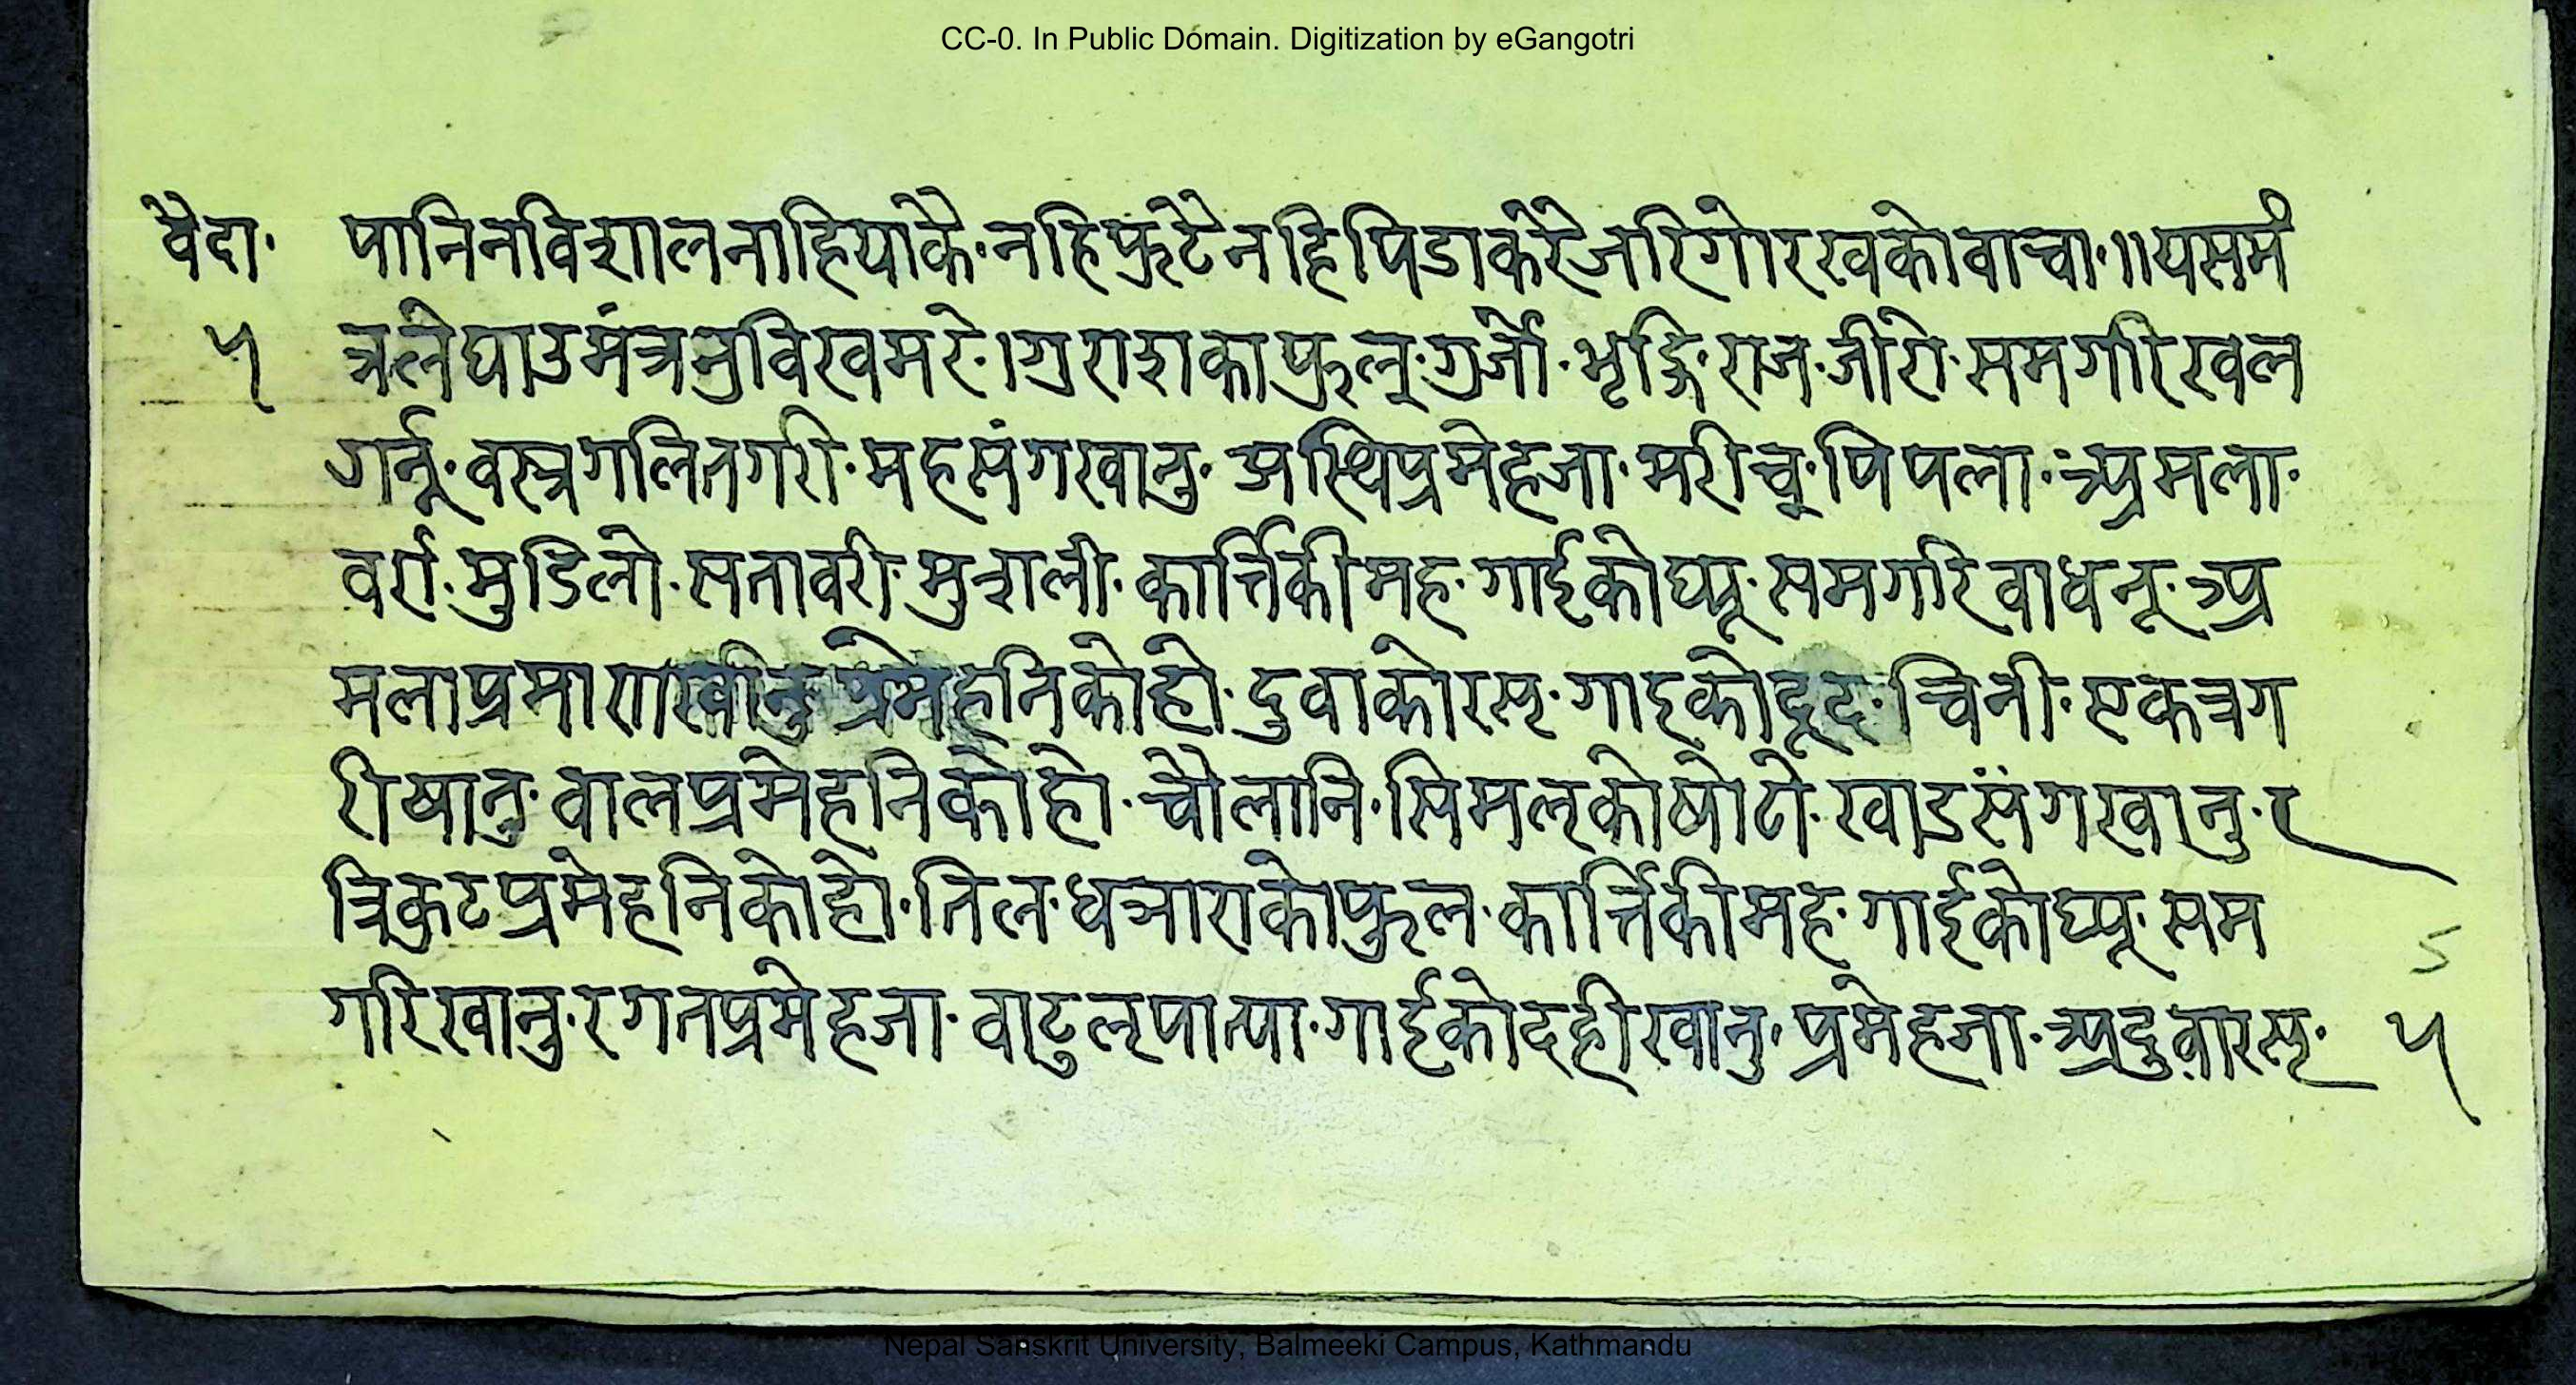 CC-0. In Public Domain. Digitization by eGangotri
वैदा॰ पानिनविशालनाहियाकै॰नहिफुटेनहिपिडाकरेजरिगोरखकोवाचा॰॥यसमं
५ त्रलेघाउमंत्रनुविखमरे॰।गुराशकाफुल्॰गुर्जो॰भृङ्गिराज॰जीरो॰समगरिखल
गर्नू॰वस्त्रगलितगरी॰महसंगखानु॰अस्थिप्रमेहजा॰मरीच्॰पिपला॰अमला॰
वर्रा॰मुडिलो॰सतावरी॰मुशली॰कार्त्तिकीमह॰गाईकोघ्यू॰समगरिवाधनू॰अ
मलाप्रमाणखानुप्रमेहनिकोहो॰दुवाकोरस्॰गाइकोदूद॰चिनी॰एकत्रग
रीषानु॰वालप्रमेहनिकोहो॰चौलानि॰सिमल्कोषोटो॰खाडसंगखानु॰
त्रिकुटप्रमेहनिकोहो॰तिल॰धञाराकोफुल॰कार्त्तिकीमह॰गाईकोघ्यू॰सम
गरिखानु॰रगतप्रमेहजा॰वाटुल्पात्पा॰गाईकोदहीखानु॰प्रमेहजा॰अदुवारस्॰ ५
Nepal Sanskrit University, Balmeeki Campus, Kathmandu